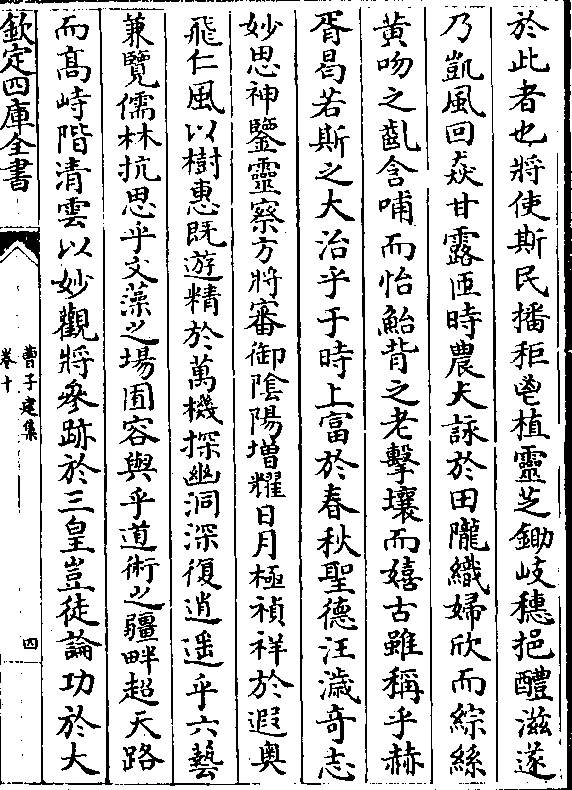 於此者也將使斯民播秬鬯植靈芝鋤岐穗挹醴滋遂
乃凱風回焱甘露匝時農夫詠於田隴織婦欣而綜絲
黃吻之齓含哺而怡鮐背之老擊壤而嬉古雖稱乎赫
胥曷若斯之大治乎于時上富於春秋聖德汪濊奇志
妙思神鑒靈察方將審御陰陽増耀日月極禎祥於遐奥
飛仁風以樹惠既遊精於萬機探幽洞深復逍遥乎六藝
兼覽儒林抗思乎文藻之場囿容與乎道術之疆畔超天路
而髙峙階清雲以妙觀將參跡於三皇豈徒論功於大
欽定四庫全書
曹子建集
卷十
四